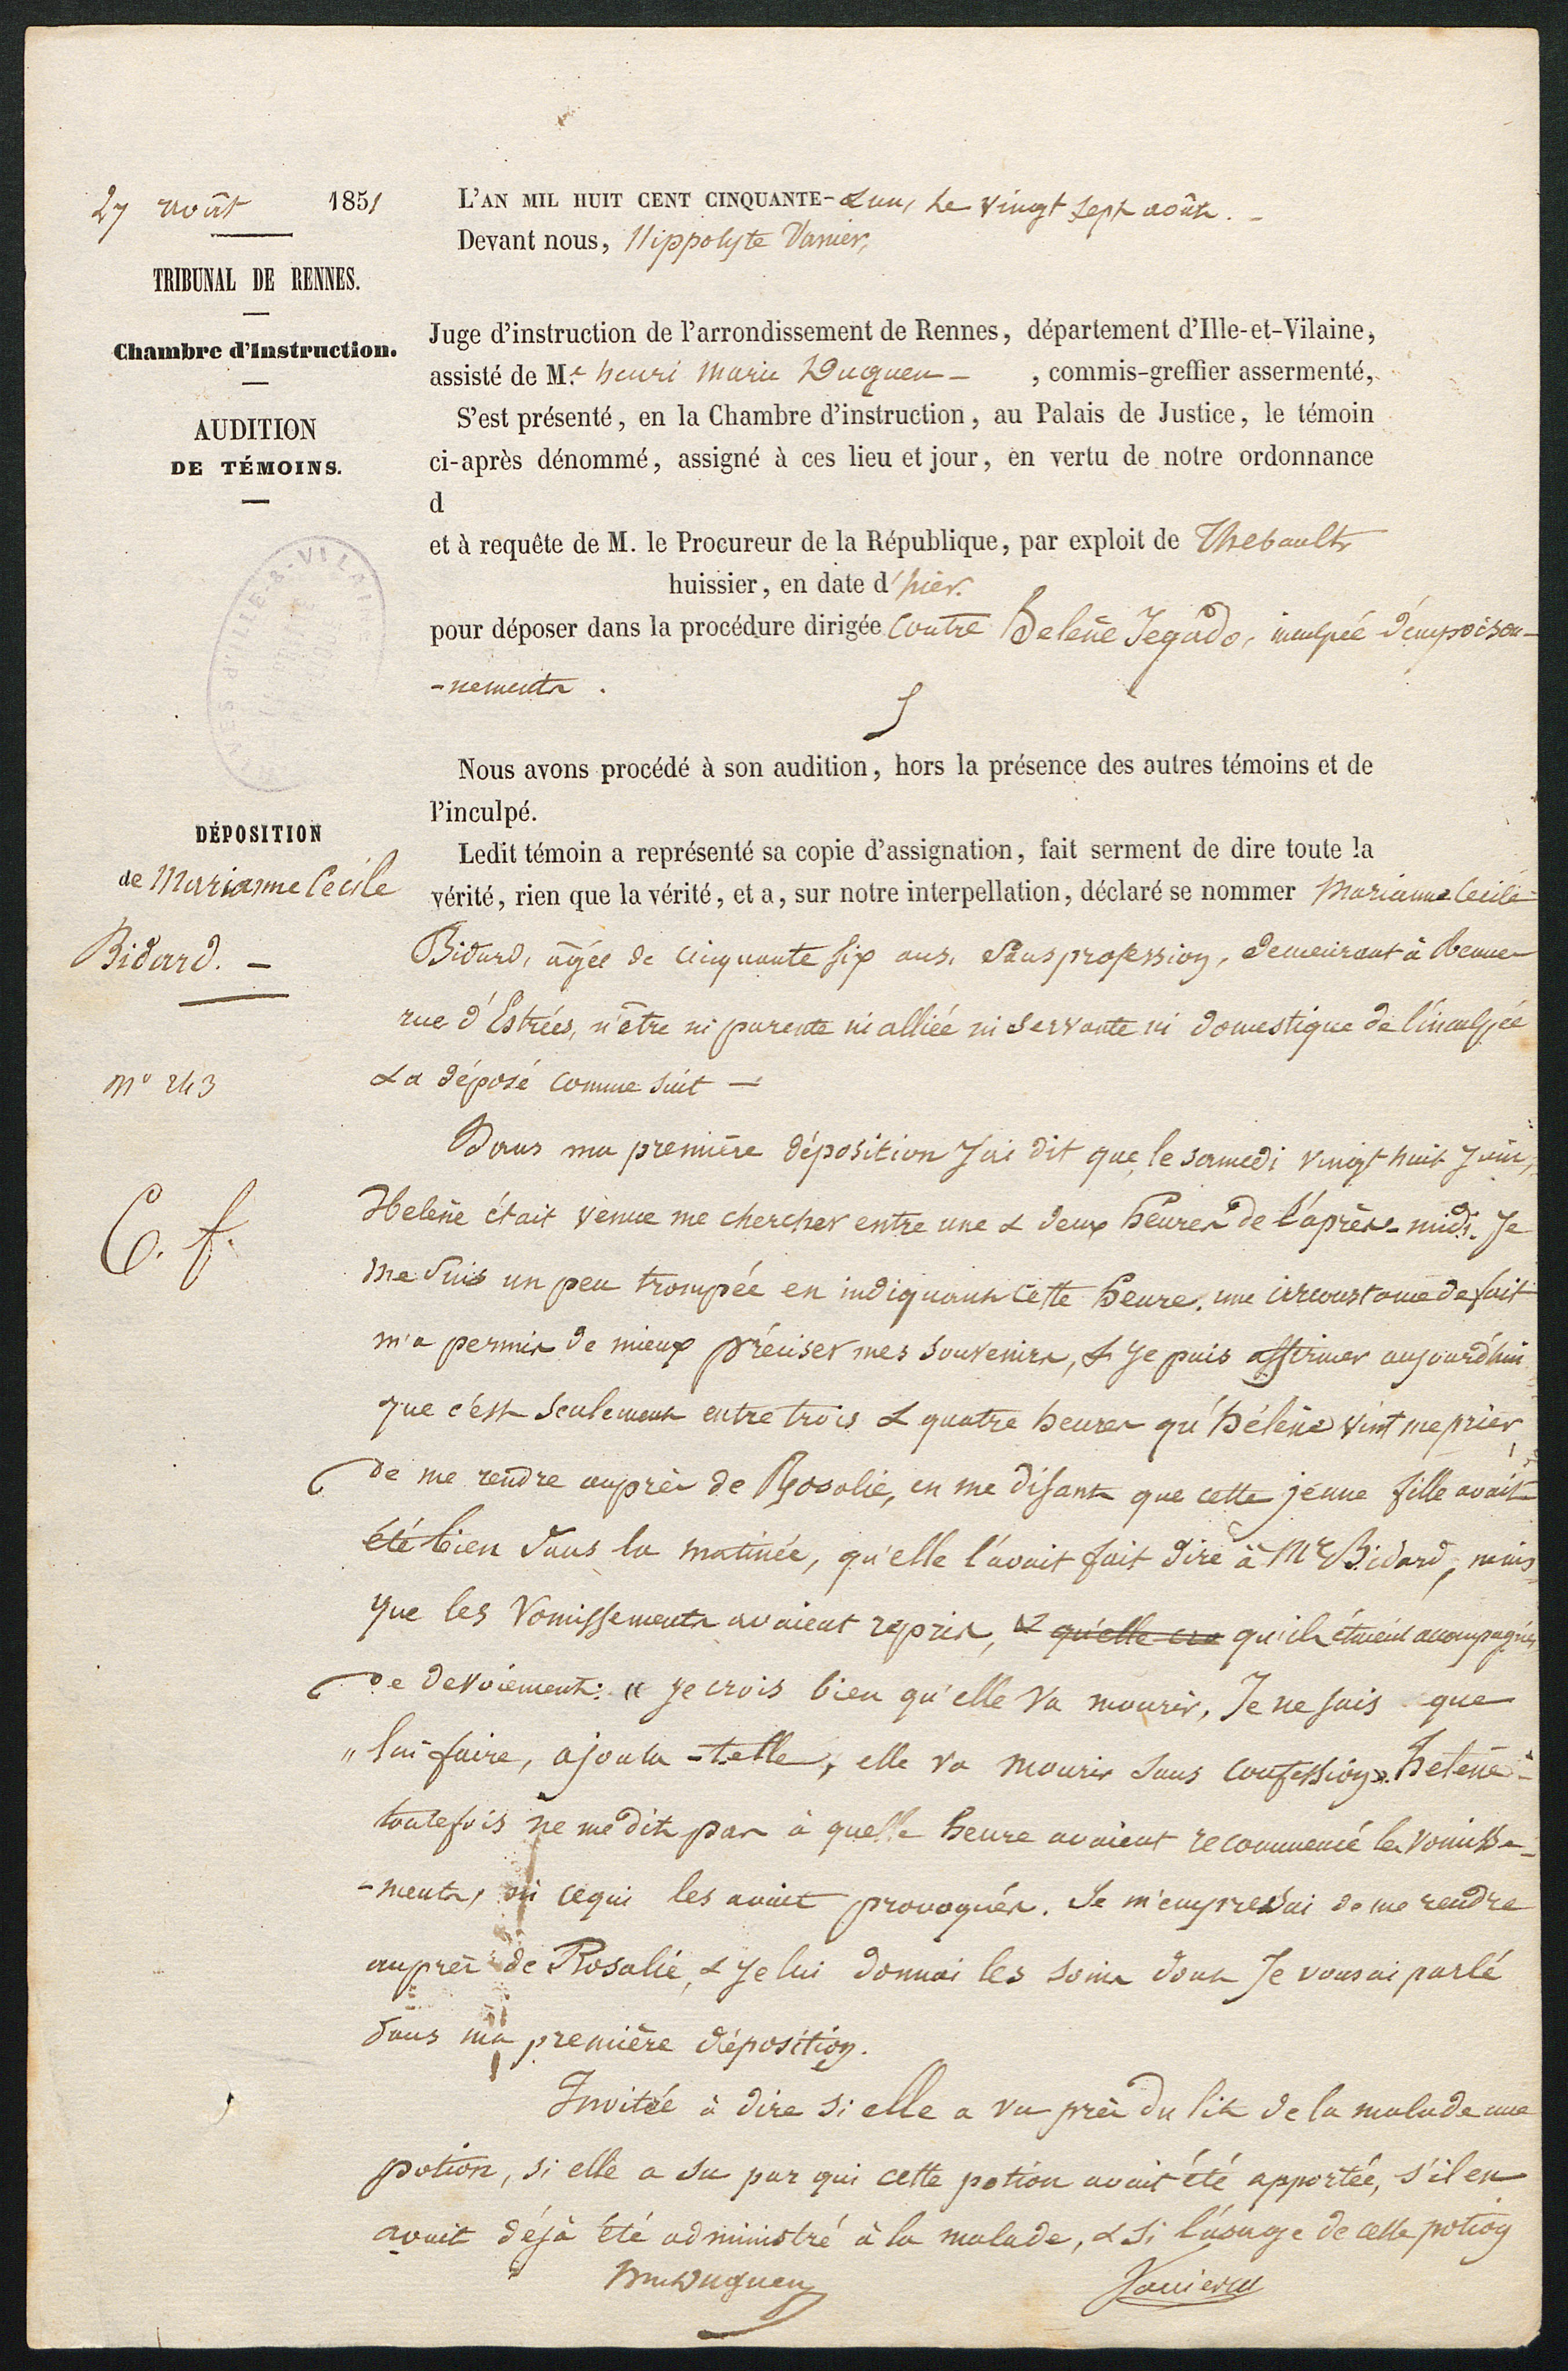 27 août 1851
TRIBUNAL DE RENNES.
Chambre d'Instruction.
AUDITION
DE TÉMOINS.
DÉPOSITION
de Marianne Cecile
Bidard. —
N° 243
C. f.
L'AN MIL HUIT CENT CINQUANTE- & un, Le vingt sept août. -
Devant nous, Hippolyte Vanier,
Juge d'instruction de l'arrondissement de Rennes, département d'Ille-et-Vilaine,
assisté de Mr. henri Marie Duguen - , commis-greffier assermenté,
S'est présenté, en la Chambre d'instruction, au Palais de Justice, le témoin
ci-après dénommé, assigné à ces lieu et jour, en vertu de notre ordonnance
d
et à requête de M. le Procureur de la République, par exploit de Thebault
huissier, en date d'hier.
pour déposer dans la procédure dirigée Contre helène Jegado, inculpée d'empoison-
-nements.
Nous avons procédé à son audition, hors la présence des autres témoins et de
l'inculpé.
Ledit témoin a représenté sa copie d'assignation, fait serment de dire toute la
vérité, rien que la vérité, et a, sur notre interpellation, déclaré se nommer Marianne Cecile
Bidard, âgée de cinquante six ans, Sans profession, demeurant à Rennes
rue d'Estrées, n'être ni parente ni alliée ni servante ni domestique de l'inculpée
& a déposé comme suit —
Dans ma première déposition J'ai dit que, le samedi vingt huit Juin,
Helène était venue me chercher entre une & deux heures de l'après-midi. Je
me Suis un peu trompée en indiquant cette heure. une circonstance de fait
m'a permis de mieux préciser mes souvenirs, & Je puis affirmer aujourd'hui
que c'est seulement entre trois & quatre heures qu'hélène vint me prier
de me rendre auprès de Rosalie, en me disant que cette jeune fille avait
été bien dans la matinée, qu'elle l'avait fait dire à Mr Bidard, mais
que les vomissements avaient repris, & qu'elle cro qu'ils étaient accompagnés
de devoiement: « Je crois bien qu'elle va mourir, Je ne sais que
" lui faire, ajouta-t-elle, elle va mourir sans confession ». helène
toutefois ne me dit pas à quelle heure avaient recommencé les vomisse-
-ments, ni ce qui les avait provoqués. Je m'empressai de me rendre
auprès de Rosalie, & Je lui donnai les soins dont Je vous ai parlé
dans ma première déposition.
Invitée à dire si elle a vu près du lit de la malade une
potion, si elle a su par qui cette potion avait été apportée, s'il en
avait déjà été administré à la malade, & si l'usage de cette potion
hmDuguen
Vanier